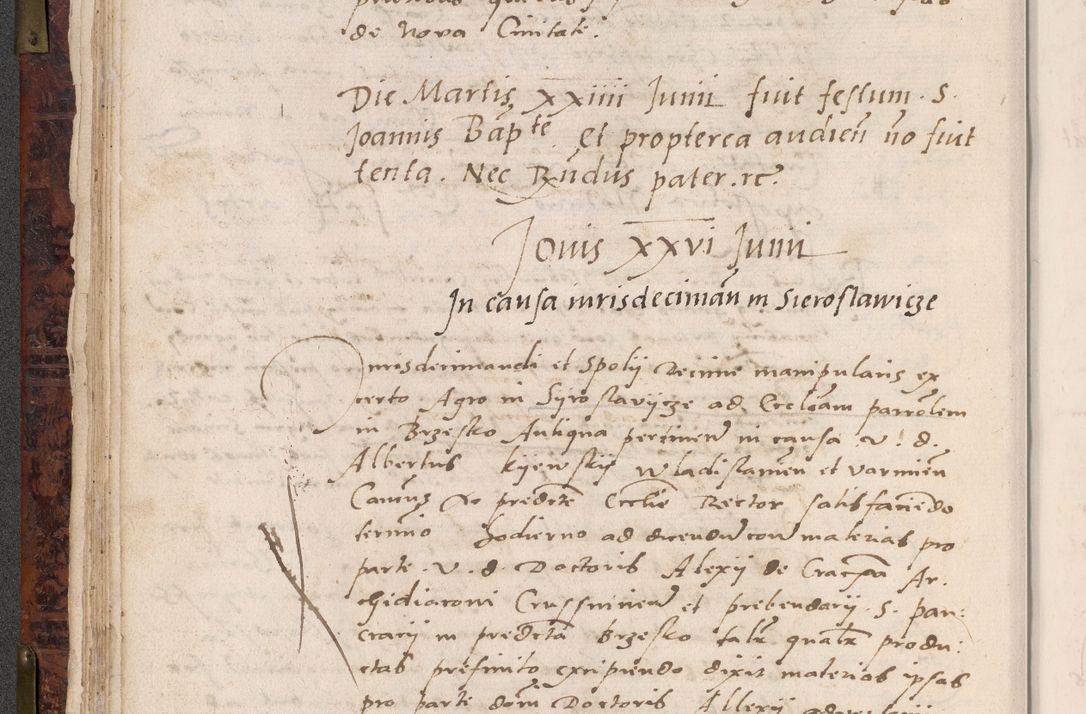 de Nova Civitate.
Die Martis XXIIII Junii fuit festum. S.
Joannis Bapte. Et propterea audien no fuit
tenta. Nec Rndus pater. rc.
Jovis XXVI Junii
In causa iurisdeciman in Sieroslawicze
Jurisdecimandi et Spolii Decime manipularis ex
certo Agro in Syroslavycze ad Eccleam parrolem
in Brzesko Antiqua pertinen in causa v. d.
Albertus Kijewskij Wladislamen et varmien
Canus Ac predicte Ecclie Rector satisfaciendo
termino hodierno ad dicendu con materias pro
parte v. d. Doctoris Alexij de Ar
chediaconi et prebendarij S. pan:
cracij in predicta Brzesko talr qualr produ:
ctas prefinito excipiendo dixit materias ipsas
pro parte dom Doctoris Allexij